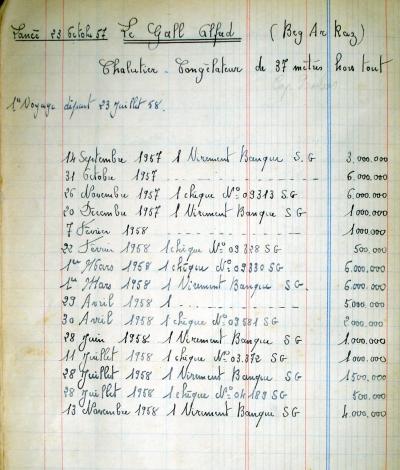 Lancé 23 Octobre 57 Le Gall Alfred (Beg Ar Raz)
Chalutier - Congélateur de 37 mètres hors tout
1er Voyage départ 23 Juillet 58.
14 Septembre 1957 1 Virement Banque S.G 3.000.000
31 Octobre 1957 6.000.000
26 Novembre 1957 1 chèque N° 09313 SG 6.000.000
20 Décembre 1957 1 Virement Banque SG 1.000.000
7 Février 1958 1.000.000
22 Février 1958 1 chèque N° 09328 SG 500.000
1er Mars 1958 1 chèque N° 09330 SG 6.000.000
1er Mars 1958 1 Virement Banque SG 6.000.000
29 Avril 1958 1 5.000.000
30 Avril 1958 1 chèque N° 09581 SG 2.000.000
28 Juin 1958 1 Virement Banque SG 1.000.000
11 Juillet 1958 1 chèque N° 03.872 SG 1.000.000
28 Juillet 1958 1 Virement Banque SG 1500.000
28 Juillet 1958 1 chèque N° 04189 SG 500.000
13 Novembre 1958 1 Virement Banque SG 4.000.000